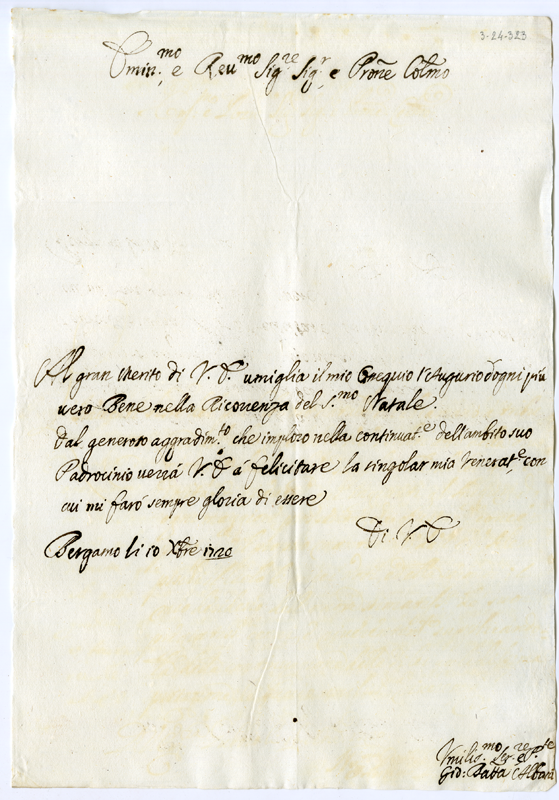 3-24-323
Emin.mo e Reu.mo Sig.re Sig.r e Prõne Colmo
Al gran Merito di V. E. umiglia il mio Osequio l'Augurio d'ogni più
uero Bene nella Ricorrenza del S.mo Natale.
Dal generoso aggradim.to che imploro nella continuat.e dell'ambito suo
Padrocinio uerrà V. E. a felicitare la singolar mia Venerat.e con
cui mi farò sempre gloria di essere
Di V. E.
Bergamo li 10 Xbre 1720
Vmilis.mo Ser.re
Gio: Batta Albani